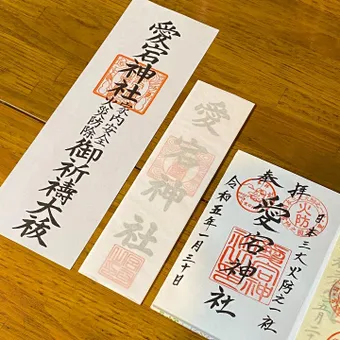 愛宕神社
家内安全
火災防除
御祈祷大祓
愛宕神社
日本三大火防之一社
火防
奉拝
愛宕神社
令和五年一月三十日